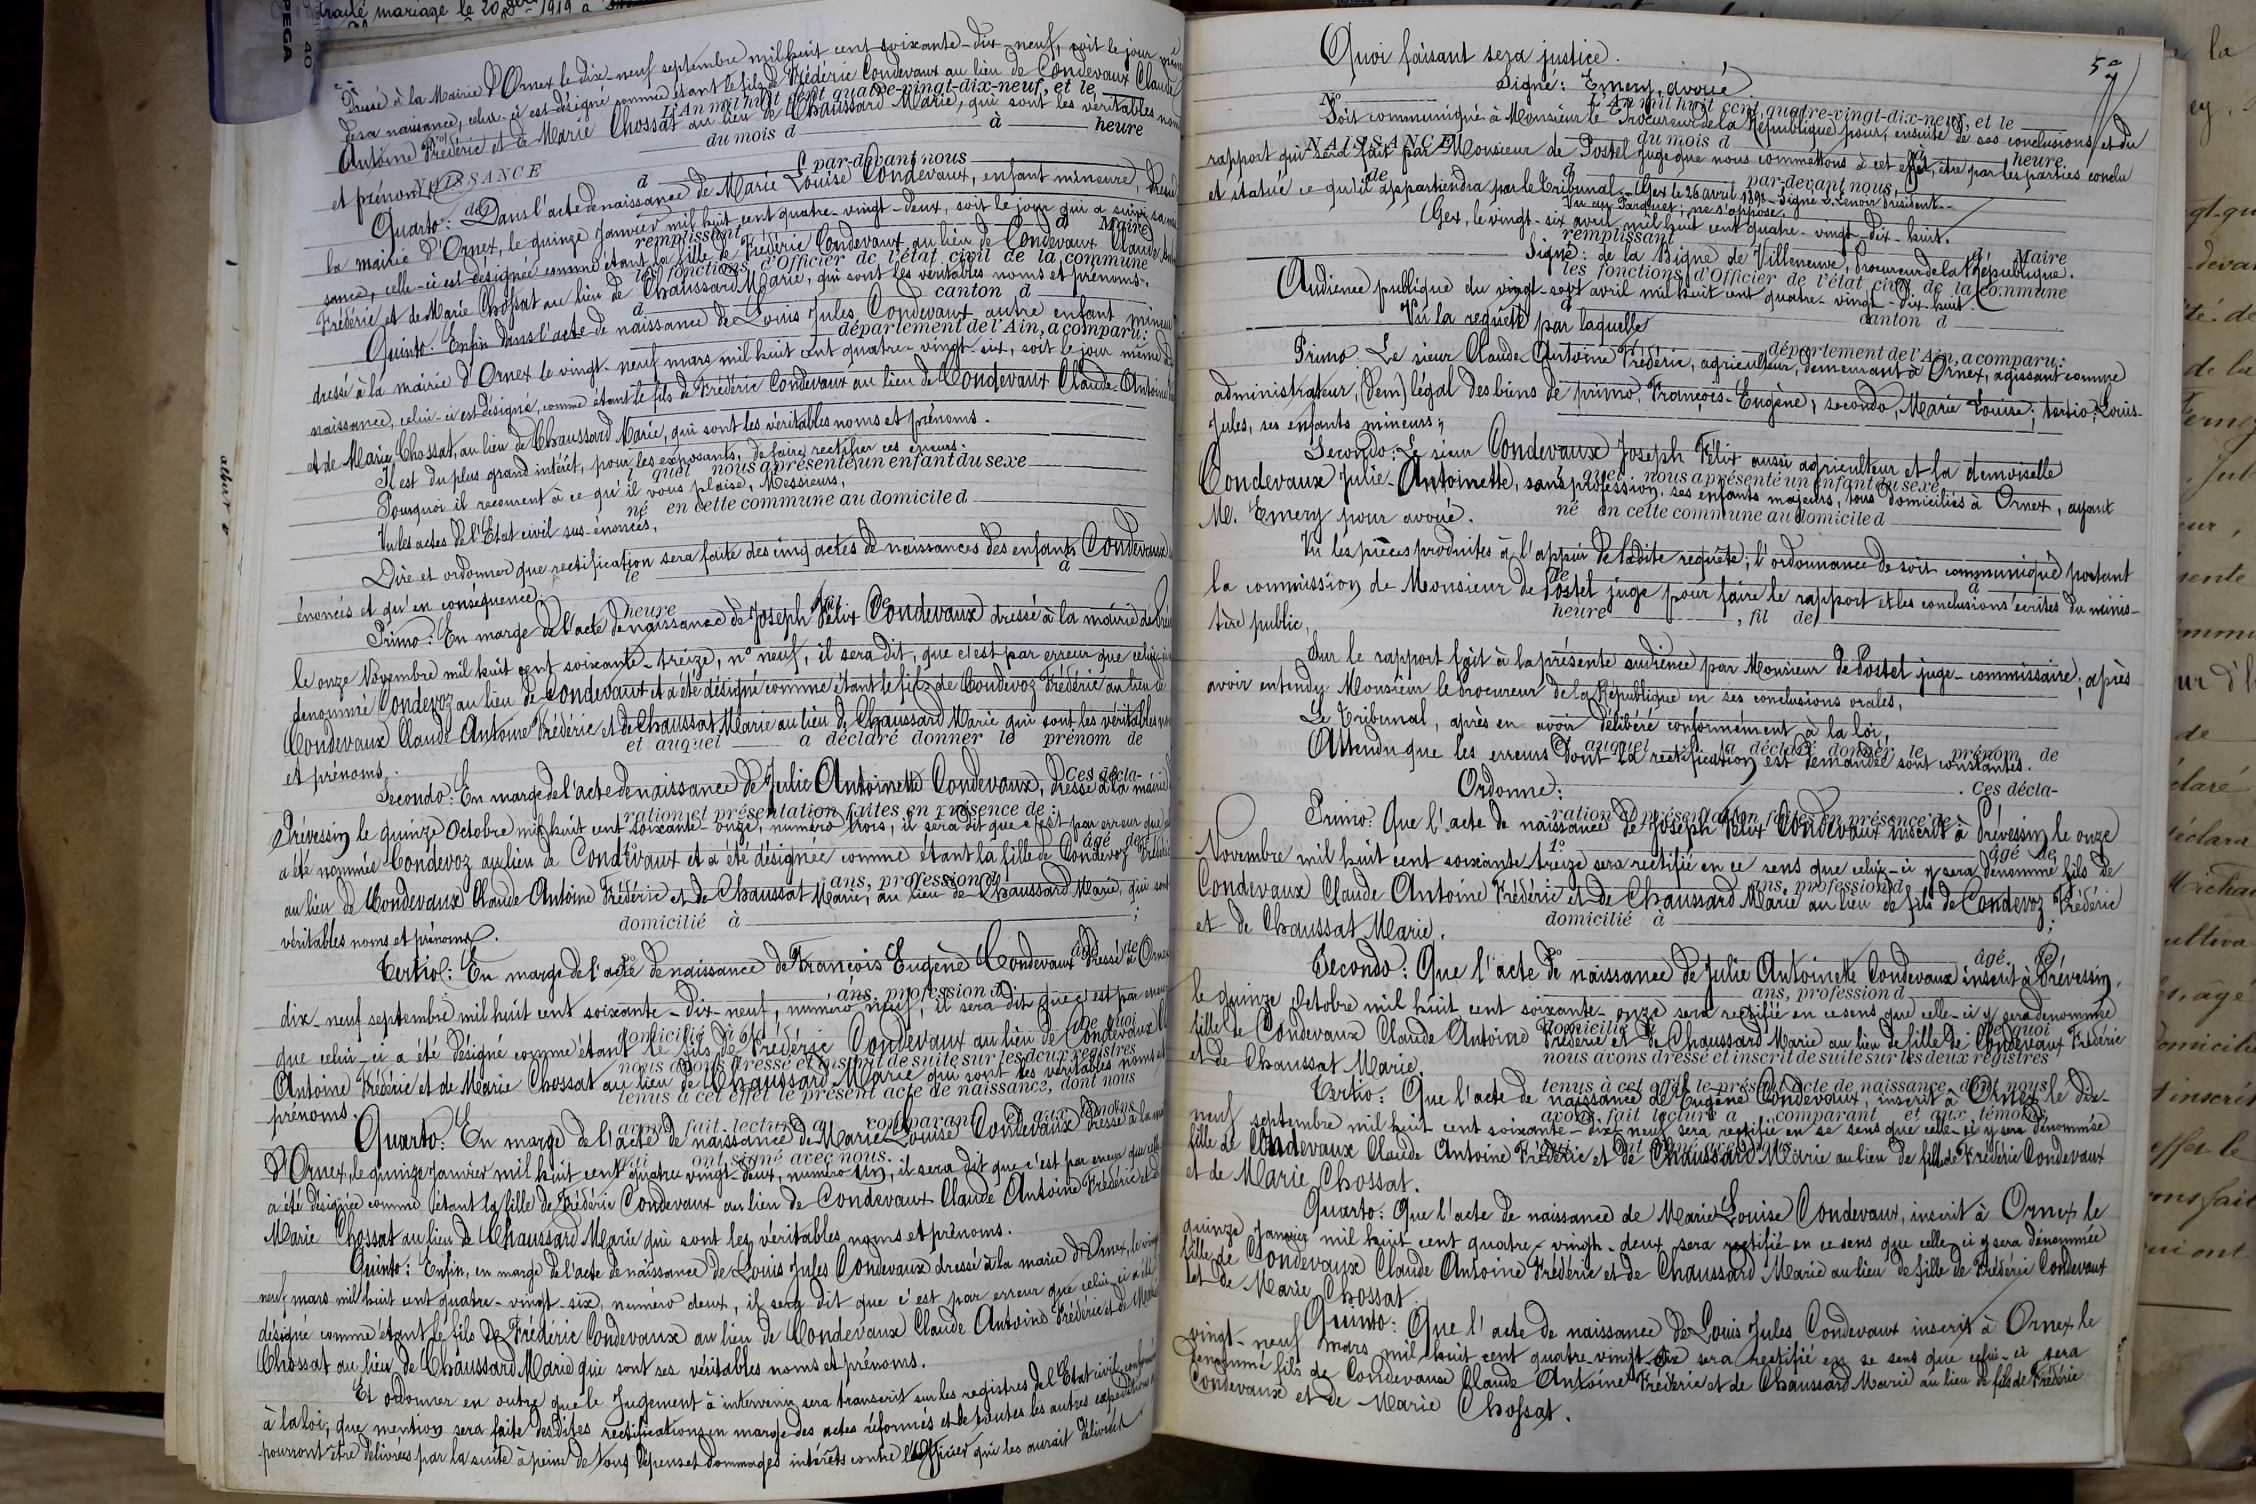 traité mariage le 20 1919 à
PEGA 40
dressé à la Mairie d'Ornex le dix-neuf septembre mil huit cent soixante-dix-neuf, soit le jour même
de sa naissance, celui-ci est désigné comme étant le fils de Frédéric Condevaux au lieu de Condevaux Claude
L'An mil huit cent quatre-vingt-dix-neuf, et le
Antoine Frédéric et de Marie Chossat au lieu de Chaussard Marie, qui sont les véritables noms
du mois d à heure
et prénoms.
NAISSANCE
d par-devant nous
Quarto: Dans l'acte de naissance de Marie Louise Condevaux, enfant mineure, dressé
de
la mairie d'Ornex, le quinze Janvier mil huit cent quatre-vingt-deux, soit le jour qui a suivi sa
remplissant d Maire
sance, celle-ci est désignée comme étant la fille de Frédéric Condevaux au lieu de Condevaux Claude
les fonctions d'Officier de l'état civil de la commune
Frédéric et de Marie Chossat au lieu de Chaussard Marie, qui sont les véritables noms et prénoms.
d canton d
Quinto: Enfin dans l'acte de naissance de Louis Jules Condevaux autre enfant mineur
département de l'Ain, a comparu:
dressé à la mairie d'Ornex le vingt-neuf mars mil huit cent quatre-vingt-six, soit le jour même de
naissance, celui-ci est désigné, comme étant le fils de Frédéric Condevaux au lieu de Condevaux Claude-Antoine
et de Marie Chossat, au lieu de Chaussard Marie, qui sont les véritables noms et prénoms.
Il est du plus grand intérêt, pour les exposants, de faire rectifier ces erreurs.
quel nous a présenté un enfant du sexe
Pourquoi il recourent à ce qu'il vous plaise, Messieurs,
né en cette commune au domicile d
Vu les actes de l'Etat civil sus-énoncés,
Dire et ordonner que rectification sera faite des cinq actes de naissances des enfants Condevaux
le à
énoncés et qu'en conséquence,
heure fil de
Primo: En marge de l'acte de naissance de Joseph Félix Condevaux dressé à la mairie de
le onze Novembre mil huit cent soixante-treize, n° neuf, il sera dit, que c'est par erreur que celui-
dénommé Condevoz au lieu de Condevaux et a été désigné comme étant le fils de Condevoz Frédéric au lieu de
Condevaux Claude Antoine Frédéric et de Chaussat Marie au lieu de Chaussard Marie qui sont les véritables
et auquel a déclaré donner le prénom de
et prénoms.
Ces décla-
Secondo: En marge de l'acte de naissance de Julie Antoinette Condevaux, dressé à la mairie
ration et présentation faites en présence de:
Prévessin le quinze Octobre mil huit cent soixante-onze, numéro trois, il sera dit que c'est par erreur que
1° âgé de
a été nommée Condevoz au lieu de Condevaux et a été désignée comme étant la fille de Condevoz Frédéric
ans, profession d
au lieu de Condevaux Claude Antoine Frédéric et de Chaussat Marie, au lieu de Chaussard Marie, qui sont
domicilié à ;
véritables noms et prénoms.
2° âgé de
Tertio: En marge de l'acte de naissance de François Eugène Condevaux dressé à Ornex
ans, profession d
dix-neuf septembre mil huit cent soixante-dix-neuf, numéro neuf, il sera dit que c'est par erreur
domicilié à De quoi
que celui-ci a été désigné comme étant le fils de Frédéric Condevaux au lieu de Condevaux
nous avons dressé et inscrit de suite sur les deux registres
Antoine Frédéric et de Marie Chossat au lieu de Chaussard Marie qui sont les véritables noms et
tenus à cet effet le présent acte de naissance, dont nous
prénoms.
avons fait lecture a comparant et aux témoins
Quarto: En marge de l'acte de naissance de Marie Louise Condevaux dressé à la
ont signé avec nous.
d'Ornex, le quinze Janvier mil huit cent quatre vingt-deux, numéro un, il sera dit que c'est par erreur que celle-
a été désignée comme étant la fille de Frédéric Condevaux au lieu de Condevaux Claude Antoine Frédéric et de
Marie Chossat au lieu de Chaussard Marie qui sont les véritables noms et prénoms.
Quinto: Enfin, en marge de l'acte de naissance de Louis Jules Condevaux dressé à la mairie d'Ornex, le vingt
neuf mars mil huit cent quatre-vingt-six, numéro deux, il sera dit que c'est par erreur que celui-ci a été
désigné comme étant le fils de Frédéric Condevaux au lieu de Condevaux Claude Antoine Frédéric et de Marie
Chossat au lieu de Chaussard Marie qui sont ses véritables noms et prénoms.
Et ordonner en outre que le Jugement à intervenir sera transcrit sur les registres de l'Etat civil conformément
à la loi; que mention sera faite desdites rectifications en marge des actes réformés et de toutes les autres expéditions
pourront être délivrées par la suite à peine de tous dépens et dommages intérêts contre l'officier qui les aurait délivrées
Quoi faisant sera justice.
Signé: Emery, avoué.
N° L'An mil huit cent quatre-vingt-dix-neuf, et le
Soit communiqué à Monsieur le Procureur de la République pour, ensuite de ses conclusions et du
NAISSANCE du mois d à heure
rapport qui sera fait par Monsieur de Postel juge que nous commettons à cet effet, être par les parties conclu
de d par-devant nous,
et statué ce qu'il appartiendra par le Tribunal. Gex le 26 avril 1898. Signé L. Lenoir Président.
Vu au Parquet; ne s'oppose.
Gex, le vingt-six avril mil huit cent quatre-vingt-dix-huit.
remplissant d Maire
Signé: de la Bigne de Villeneuve, Procureur de la République.
les fonctions d'Officier de l'état civil de la commune
Audience publique du vingt-sept avril mil huit cent quatre-vingt-dix-huit.
d canton d
Vu la requête par laquelle
département de l'Ain, a comparu:
Primo. Le sieur Claude-Antoine Frédéric, agriculteur, demeurant à Ornex, agissant comme
administrateur, (Dem) légal des biens de primo, François-Eugène; secondo, Marie Louise; tertio, Louis-
Jules, ses enfants mineurs;
Secondo: Le sieur Condevaux Joseph Félix aussi agriculteur et la demoiselle
quel nous a présenté un enfant du sexe
Condevaux Julie-Antoinette, sans profession, ses enfants majeurs, tous domiciliés à Ornex, ayant
né en cette commune au domicile d
M. Emery pour avoué.
Vu les pièces produites à l'appui de ladite requête; l'ordonnance de soit communiqué portant
le à
la commission de Monsieur de Postel juge pour faire le rapport et les conclusions écrites du minis-
heure , fil de
tère public,
Sur le rapport fait à la présente audience par Monsieur de Postel juge-commissaire; après
avoir entendu Monsieur le Procureur de la République en ses conclusions orales,
Le Tribunal, après en avoir délibéré conformément à la loi,
auquel a déclaré donner le prénom de
Attendu que les erreurs dont la rectification est demandée sont constantes.
Ordonne:
. Ces décla-
ration et présentation faites en présence de:
Primo: Que l'acte de naissance de Joseph Félix Condevaux inscrit à Prévessin le onze
1° âgé de
Novembre mil huit cent soixante treize sera rectifié en ce sens que celui-ci y sera dénommé fils de
ans, profession d
Condevaux Claude Antoine Frédéric et de Chaussard Marie au lieu de fils de Condevoz Frédéric
domicilié à ;
et de Chaussat Marie.
2° âgé de
Secondo: Que l'acte de naissance de Julie Antoinette Condevaux inscrit à Prévessin,
ans, profession d
le quinze Octobre mil huit cent soixante-onze sera rectifié en ce sens que celle-ci y sera dénommée
domicilié à De quoi
fille de Condevaux Claude Antoine Frédéric et de Chaussard Marie au lieu de fille de Condevaux Frédéric
nous avons dressé et inscrit de suite sur les deux registres
et de Chaussat Marie.
tenus à cet effet le présent acte de naissance, dont nous
Tertio: Que l'acte de naissance de Eugène Condevaux, inscrit à Ornex le dix-
avons fait lecture a comparant et aux témoins
neuf septembre mil huit cent soixante-dix-neuf sera rectifié en se sens que celle-ci y sera dénommée
fille de Condevaux Claude Antoine Frédéric et de Chaussard Marie au lieu de fille de Frédéric Condevaux
et de Marie Chossat.
Quarto: Que l'acte de naissance de Marie Louise Condevaux, inscrit à Ornex le
quinze Janvier mil huit cent quatre-vingt-deux sera rectifié en ce sens que celle-ci y sera dénommée
fille de Condevaux Claude Antoine Frédéric et de Chaussard Marie au lieu de fille de Frédéric Condevaux
et de Marie Chossat.
Quinto: Que l'acte de naissance de Louis Jules Condevaux inscrit à Ornex le
vingt-neuf Mars mil huit cent quatre-vingt six sera rectifié en se sens que celui-ci sera
dénommé fils de Condevaux Claude Antoine Frédéric et de Chaussard Marie au lieu de fils de Frédéric
Condevaux et de Marie Chossat.